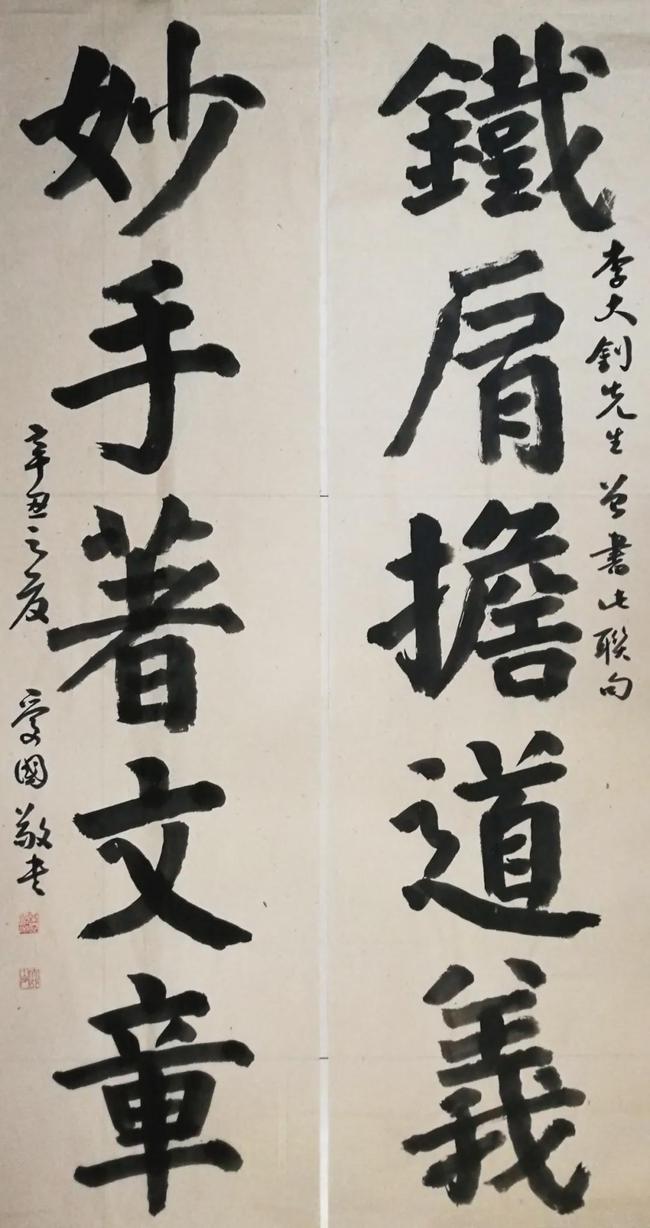 鐵肩擔道義
李大釗先生曾書此聯句
妙手著文章
辛丑之夏 愛國敬書